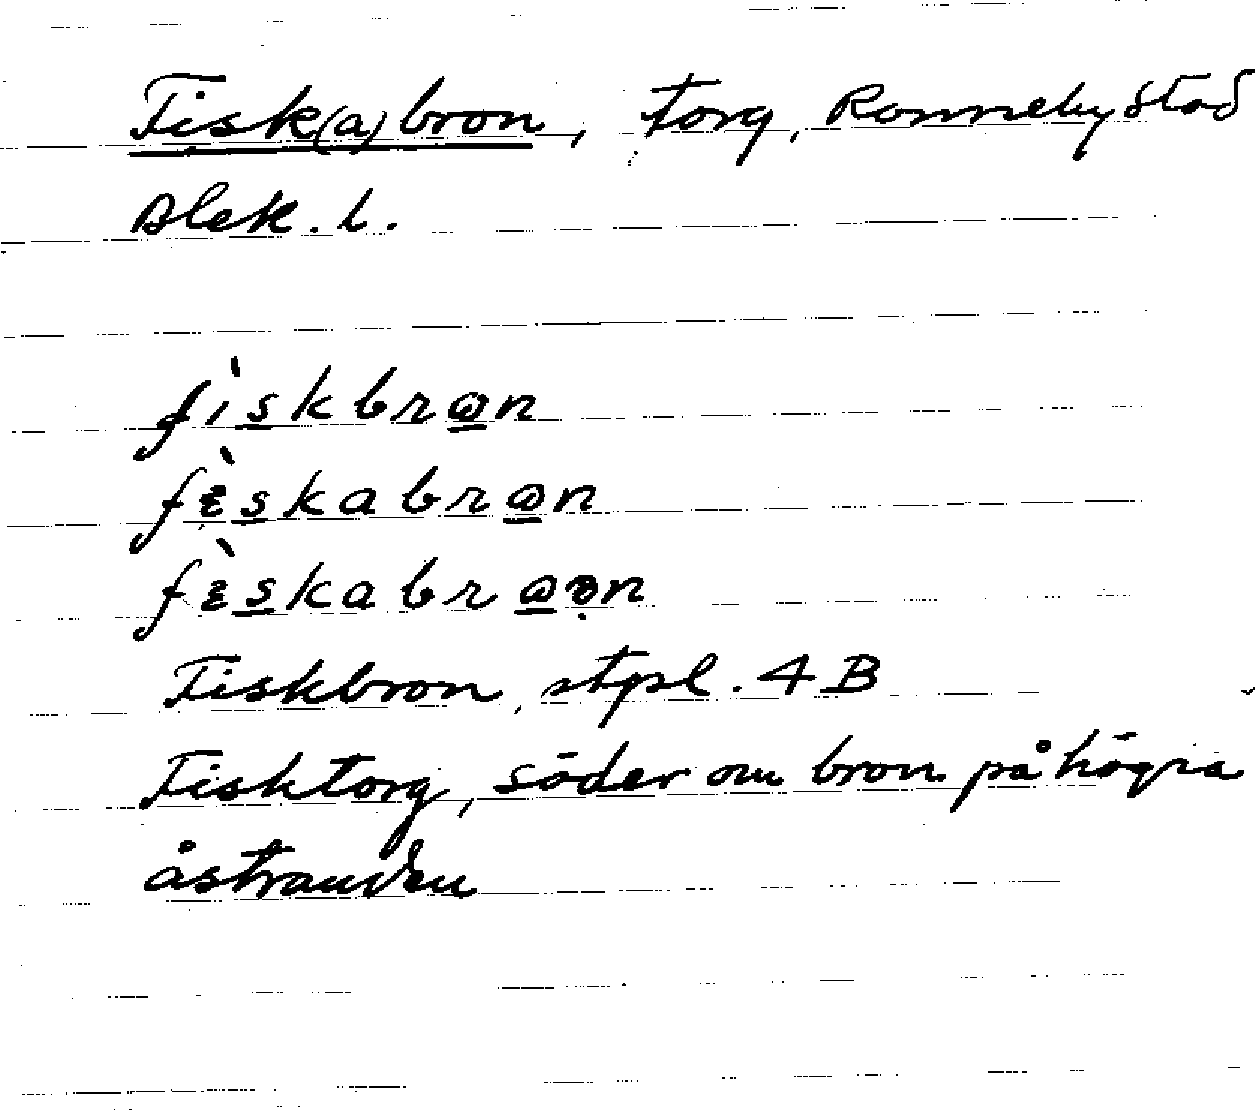 Fisk(a)bron, torg, Ronneby stad
Blek. l.
fìskbrωn
fìskabrωn
fìskabrωən
Fiskbron, stpl. 4 B
Fisktorg, söder om bron på högra
åstranden